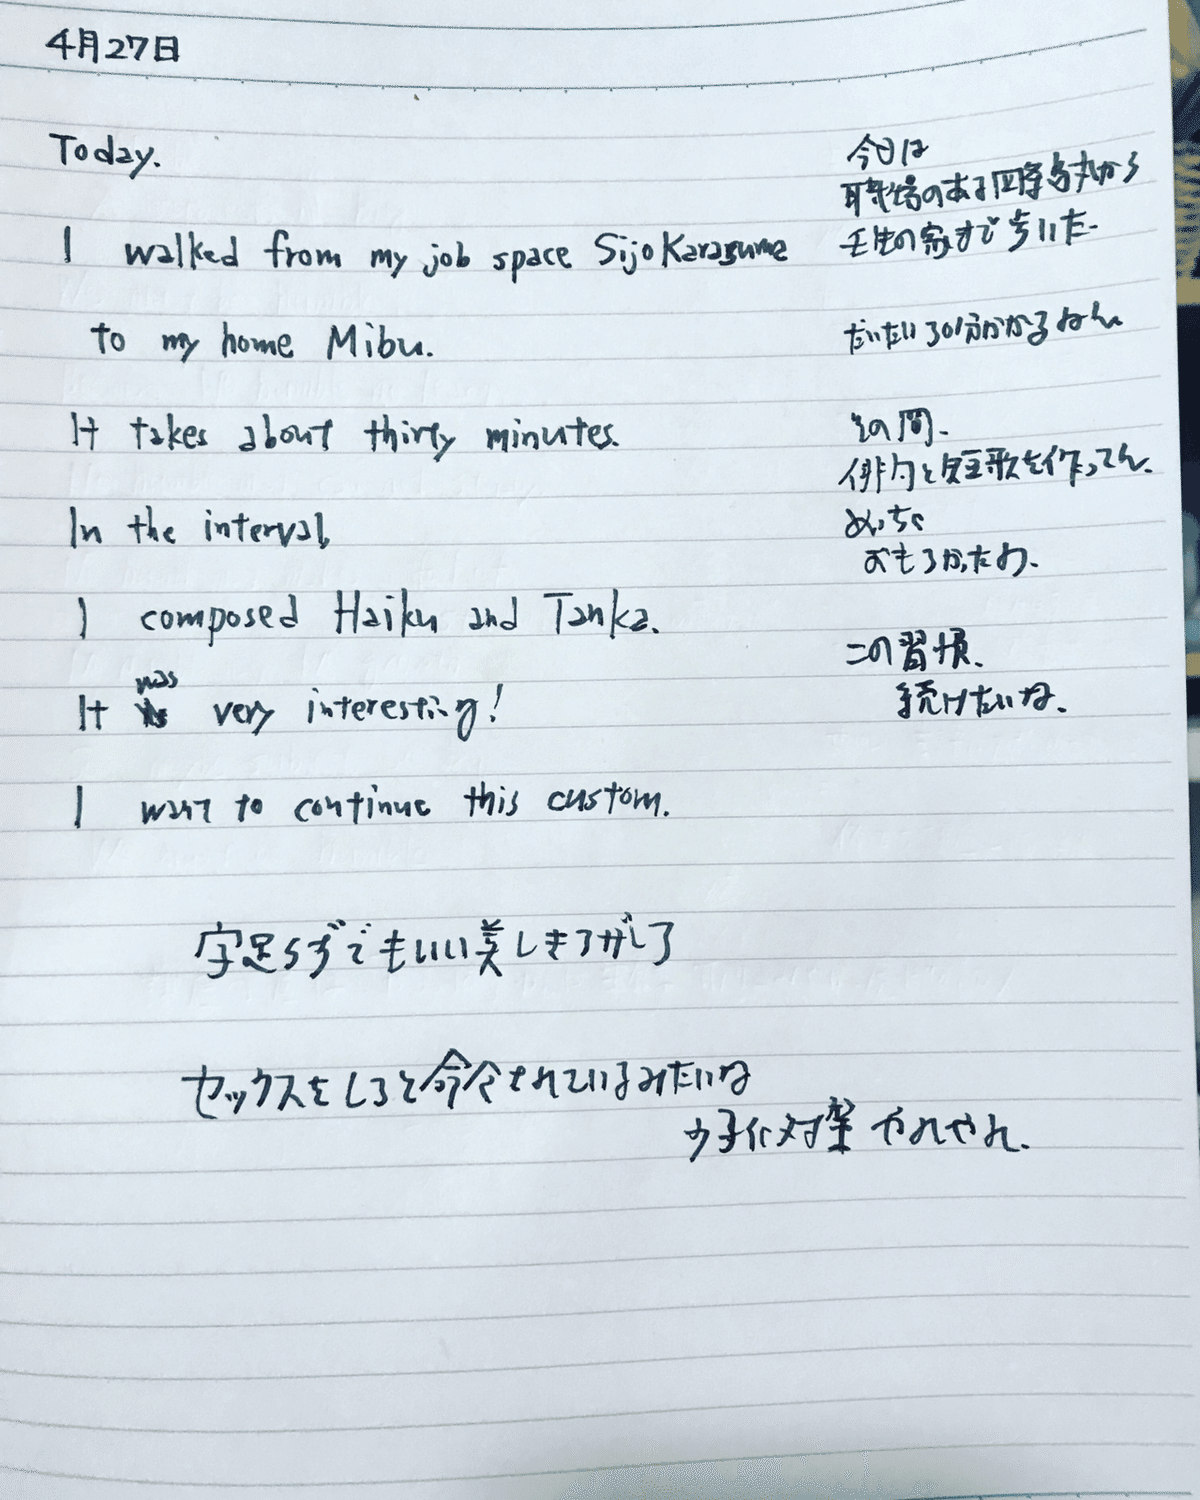 4月27日
Today.
I walked from my job space SijoKarasuma
to my home Mibu.
It takes about thirty minutes.
In the interval,
I composed Haiku and Tanka.
It was very interesting!
I want to continue this custom.
今日は
職場のある四条烏丸から
壬生の家まで歩いた
だいたい30分かかるねん
その間、
俳句と短歌を作ってん。
めっちゃ
おもろかったわ。
この習慣、
続けたいね。
字足らずでもいい美しき
セックスをしろと命令されているみたいね
少子化対策 やれやれ。